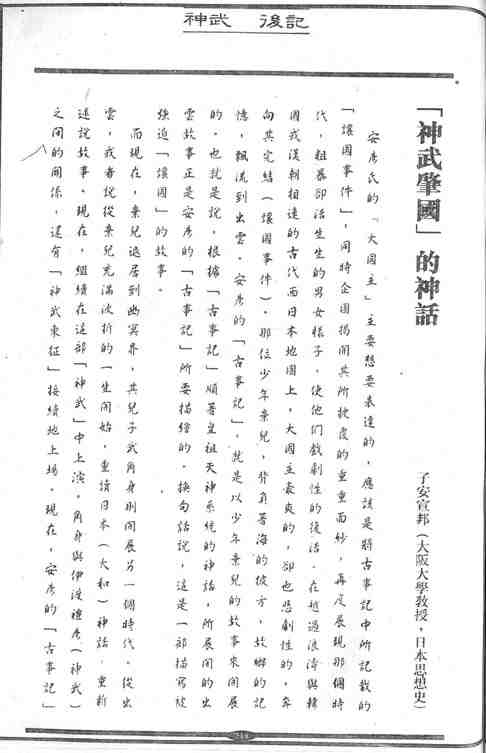 神武 後記
「神武肇國」的神話
子安宣邦(大阪大學教授,日本思想史)
安彥氏的「大國主」主要想要表達的,應該是將古事記中所記載的
「讓國事件」,同時企圖揭開其所披覆的重重面紗,再度展現那個時
代,粗暴卻活生生的男女樣子,使他们戲劇性的復活。在越過浪濤與韓
國或漢朝相連的古代西日本地圖上,大國主豪爽的,卻也悲劇性的,牽
向其完結(讓國事件)。那位少年棄兒,背負著海的彼方,故鄉的記
憶,飄流到出雲。安彥的「古事記」,就是以少年棄兒的故事來開展
的。也就是說,根據「古事記」順著皇祖天神系統的神話,所展開的出
雲故事正是安彥的「古事記」所要描繪的。換句話說,這是一部描寫從
強迫「讓國」的故事。
而現在,棄兒退居到幽冥界,其兒子武角身則開展另一個時代。從出
雲,或者說從棄兒充滿波折的一生開始,重讀日本(大和)神話,重新
述說故事。現在,繼續在這部「神武」中上演。角身與伊波禮彥(神武)
之間的關係,還有「神武東征」接續地上場。現在,安彥的「古事記」